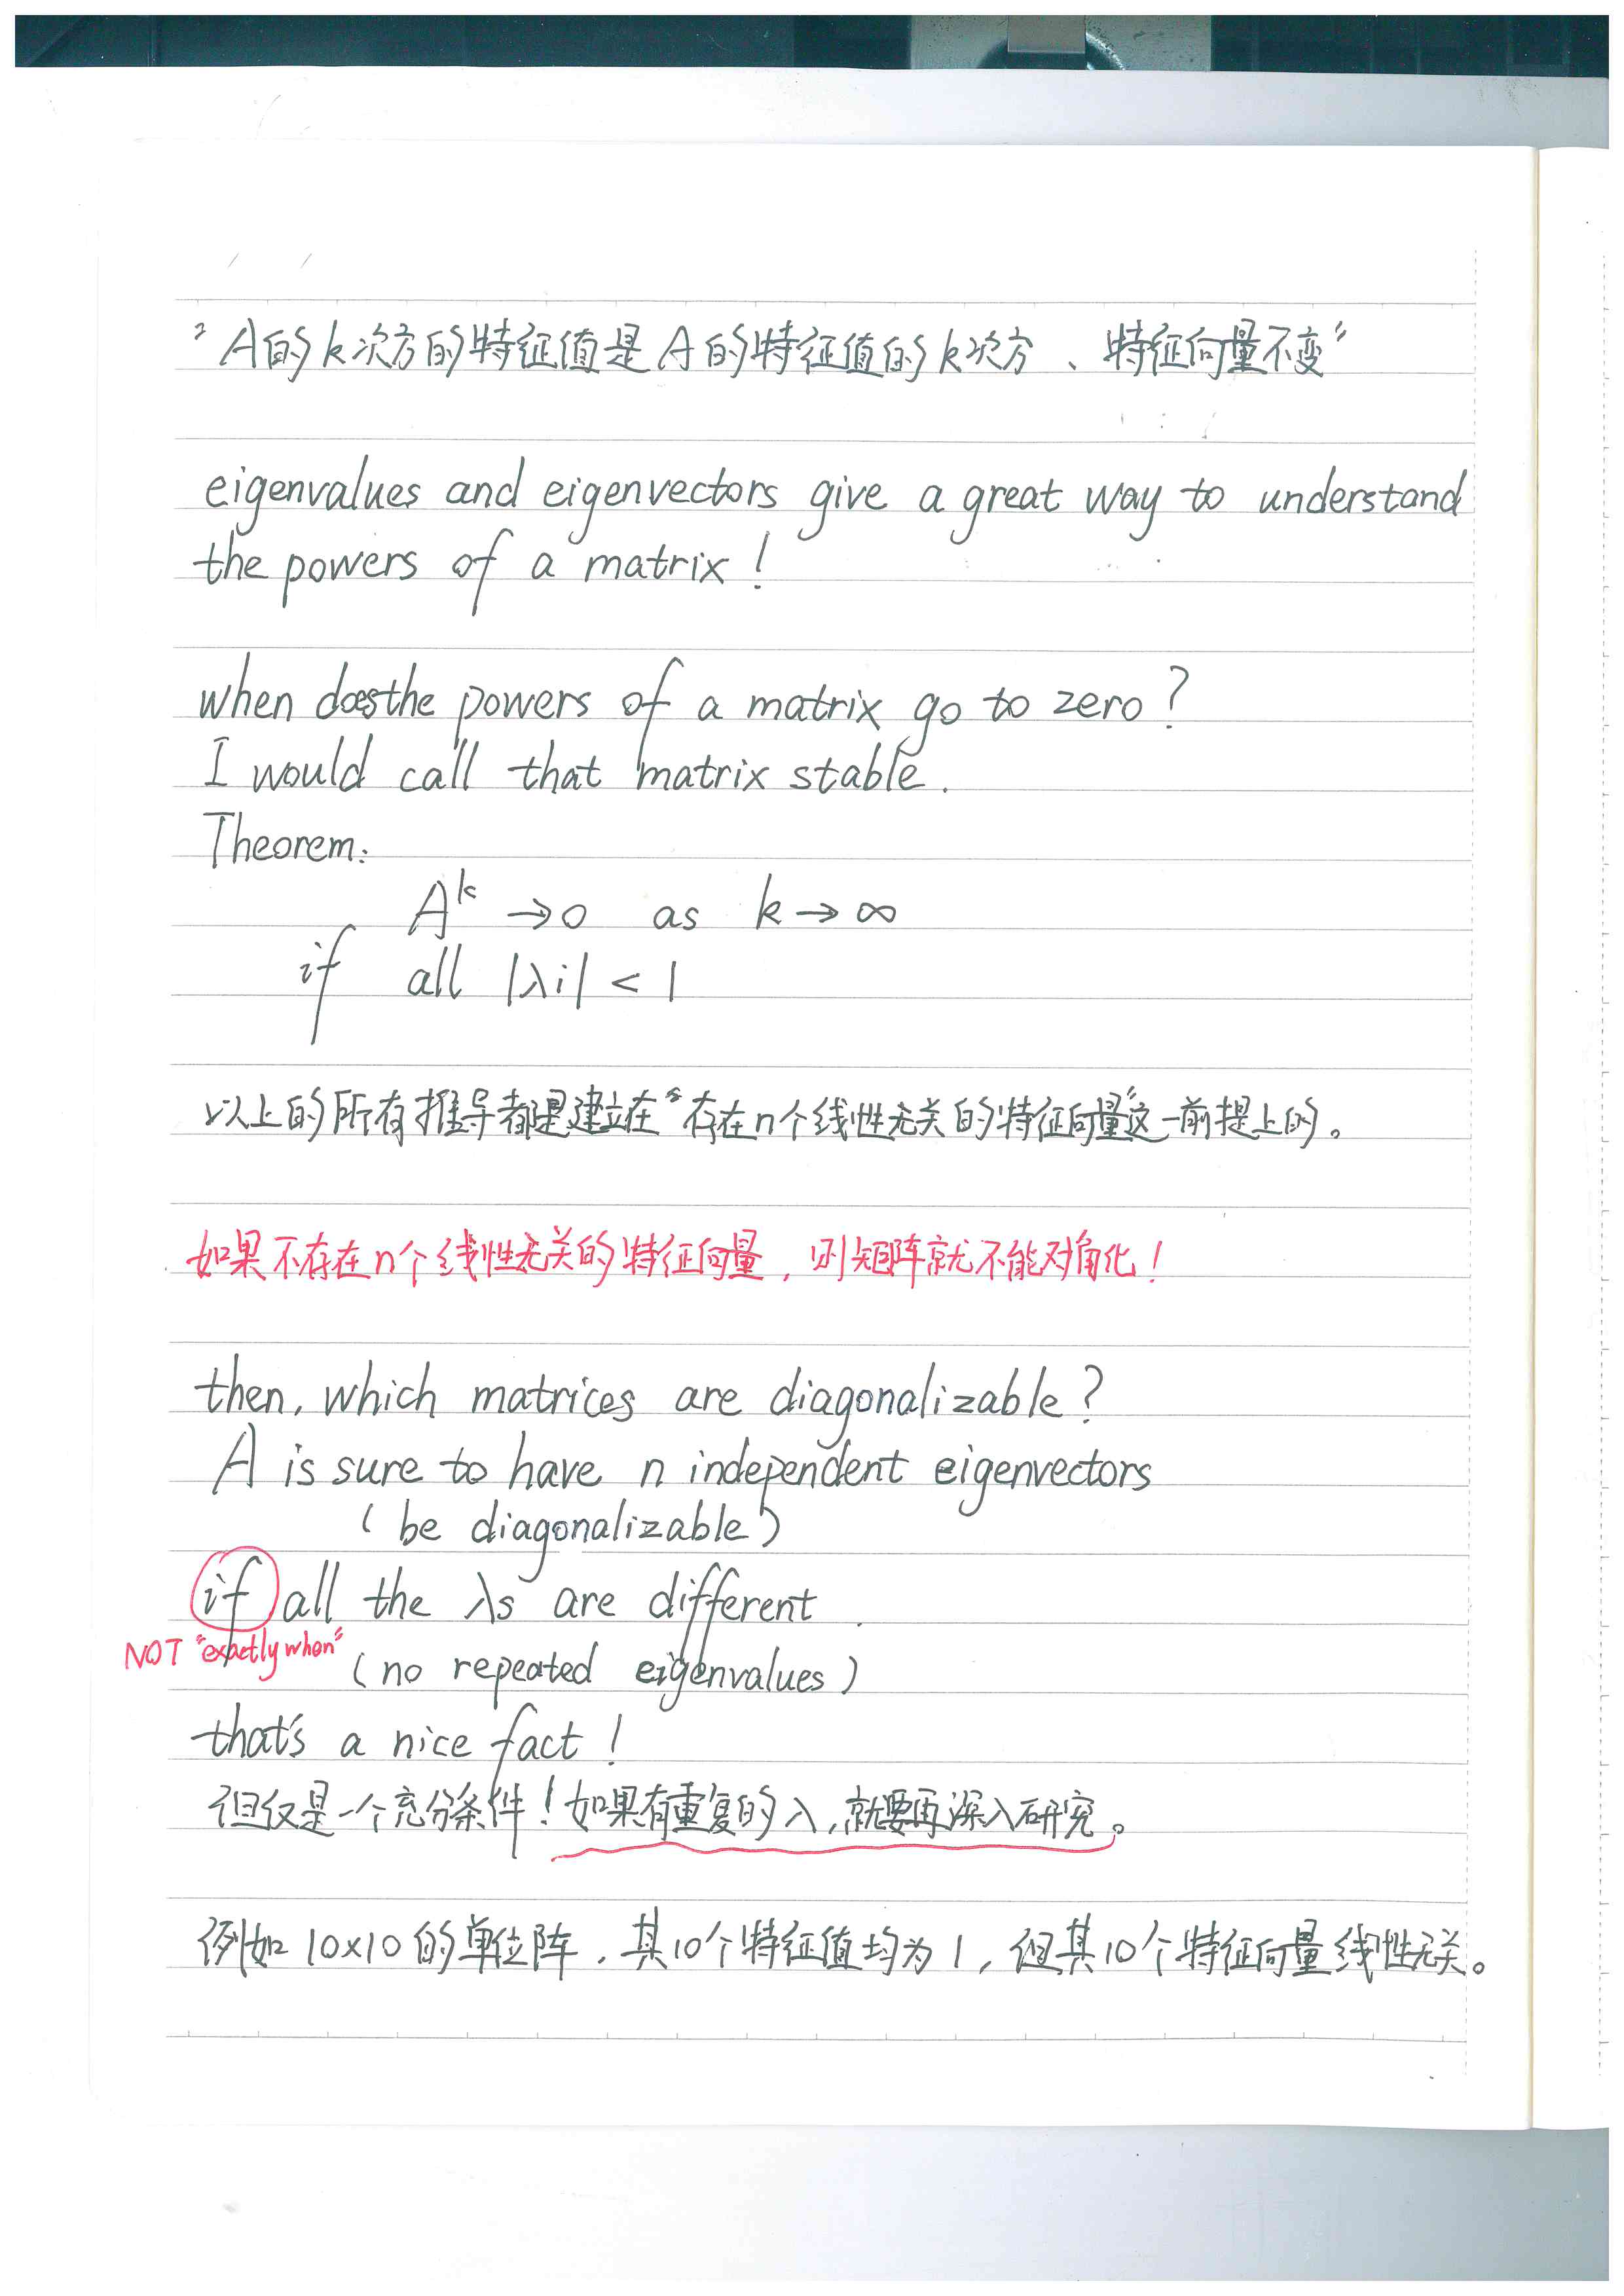 "A的k次方的特征值是A的特征值的k次方、特征向量不变"
eigenvalues and eigenvectors give a great way to understand
the powers of a matrix!
when does the powers of a matrix go to zero?
I would call that matrix stable.
Theorem:
A^k → 0 as k → ∞
if all |λi| < 1
以上的所有推导都是建立在"存在n个线性无关的特征向量"这一前提上的。
如果不存在n个线性无关的特征向量,则矩阵就不能对角化!
then, which matrices are diagonalizable?
A is sure to have n independent eigenvectors
(be diagonalizable)
if all the λs are different.
NOT "exactly when"
(no repeated eigenvalues)
that's a nice fact!
但仅是一个充分条件!如果有重复的λ,就要再深入研究。
例如10×10的单位阵,其10个特征值均为1,但其10个特征向量线性无关。